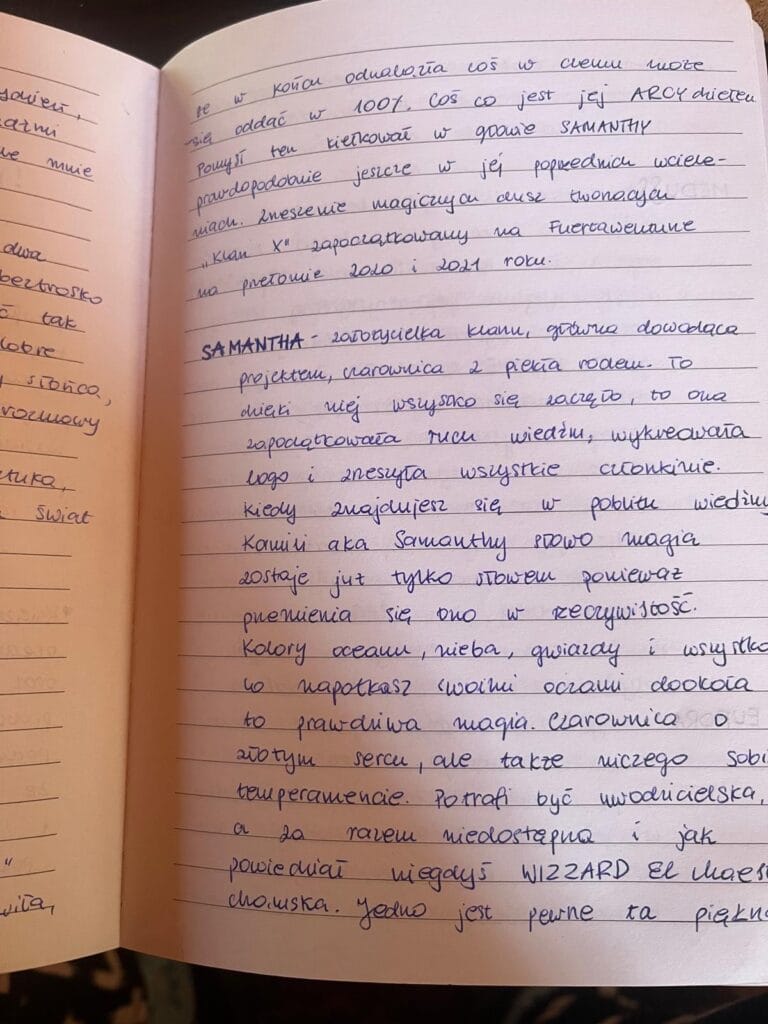 dwa
beztrosko
ć tak
dobre
y słońca,
rozmowy
świat
że w końcu odnalazła coś w czemu może
się oddać w 100%. Coś co jest jej ARCYdziełem
Pomysł ten kiełkował w głowie SAMANTHY
prawdopodobnie jeszcze w jej poprzednich wciele-
niach. Zrzeszenie magicznych dusz tworzących
„Klan X" zapoczątkowany na Fuertawenturze
na przełomie 2020 i 2021 roku.
SAMANTHA - założycielka klanu, główna dowodząca
projektem, czarownica z piekła rodem. To
dzięki niej wszysko się zaczęło, to ona
zapoczątkowała ruch wiedźm, wykreowała
logo i zrzeszyła wszystkie członkinie.
Kiedy znajdujesz się w pobliżu wiedźmy
Kamili aka Samanthy słowo magia
zostaje już tylko słowem ponieważ
przemienia się ono w rzeczywistość.
Kolory oceanu, nieba, gwiazdy i wszystko
co napotkasz swoimi oczami dookoła
to prawdziwa magia. Czarownica o
złotym sercu, ale także niczego sobie
temperamencie. Potrafi być uwodzicielska,
a za razem niedostępna i jak
powiedział niegdyś WIZZARD El Maest
Jedno jest pewne ta piękna